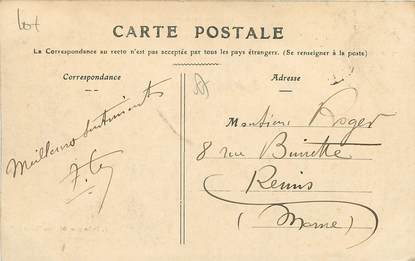 Lot
CARTE POSTALE
La Correspondance au recto n'est pas acceptée par tous les pays étrangers. (Se renseigner à la poste)
Correspondance
Adresse
Meilleurs sentiments
Monsieur Roger
8 rue
Reims
(Marne)